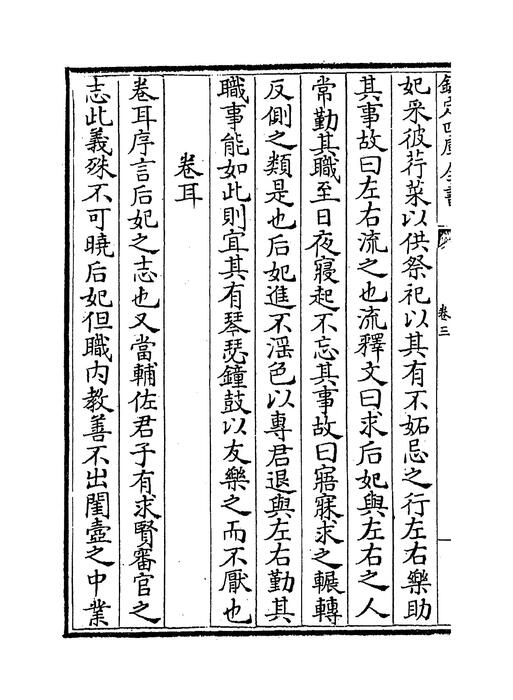 欽定四庫全書
卷三
妃采彼荇菜以供祭祀以其有不妬忌之行左右樂助
其事故曰左右流之也流釋文曰求后妃與左右之人
常勤其職至日夜寢起不忘其事故曰寤寐求之輾轉
反側之類是也后妃進不滛色以專君退與左右勤其
職事能如此則宜其有琴瑟鐘鼓以友樂之而不厭也
卷耳
卷耳序言后妃之志也又當輔佐君子有求賢審官之
志此義殊不可曉后妃但職内教善不出閨壼之中業